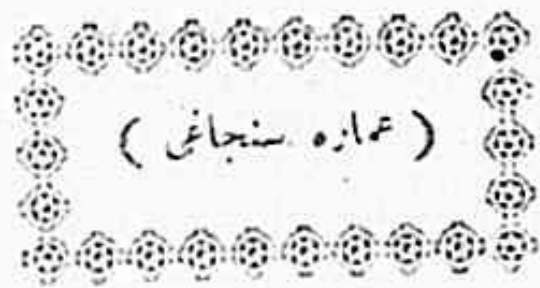 ( عماره سنجاغى )